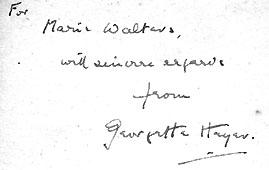 For
Marie Walters,
with sincere regards
from
Georgette Heyer.